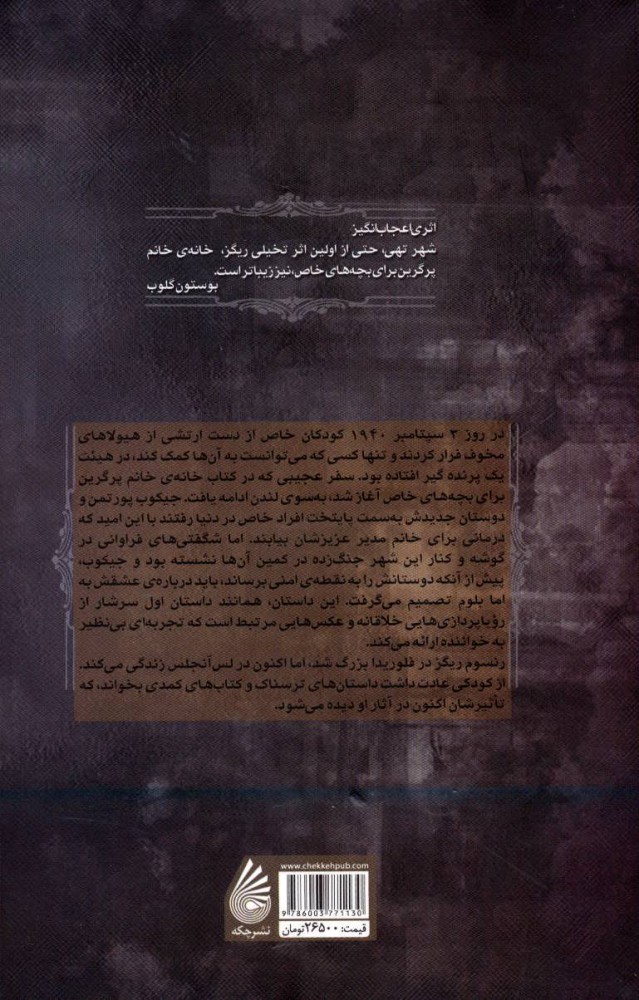 اثری اعجاب‌انگیز
شهر تهی، حتی از اولین اثر تخیلی ریگز، خانه‌ی خانم
پرگرین برای بچه‌های خاص، نیز زیباتر است.
بوستون گلوب
در روز ۳ سپتامبر ۱۹۴۰ کودکان خاص از دست ارتشی از هیولاهای
مخوف فرار کردند و تنها کسی که می‌توانست به آن‌ها کمک کند، در هیئت
یک پرنده گیر افتاده بود. سفر عجیبی که در کتاب خانه‌ی خانم پرگرین
برای بچه‌های خاص آغاز شد، به‌سوی لندن ادامه یافت. جیکوب پورتمن و
دوستان جدیدش به‌سمت پایتخت افراد خاص در دنیا رفتند با این امید که
درمانی برای خانم مدیر عزیزشان بیابند. اما شگفتی‌های فراوانی در
گوشه و کنار این شهر جنگ‌زده در کمین آن‌ها نشسته بود و جیکوب،
پیش از آنکه دوستانش را به نقطه‌ی امنی برساند، باید درباره‌ی عشقش به
اما بلوم تصمیم می‌گرفت. این داستان، همانند داستان اول سرشار از
رؤیاپردازی‌هایی خلاقانه و عکس‌هایی مرتبط است که تجربه‌ای بی‌نظیر
به خواننده ارائه می‌کند.
رنسوم ریگز در فلوریدا بزرگ شد، اما اکنون در لس‌آنجلس زندگی می‌کند.
از کودکی عادت داشت داستان‌های ترسناک و کتاب‌های کمدی بخواند، که
تأثیرشان اکنون در آثار او دیده می‌شود.
www.chekkehpub.com
9 786003 771130
قیمت: ۲۶۵۰۰تومان
نشر چکه